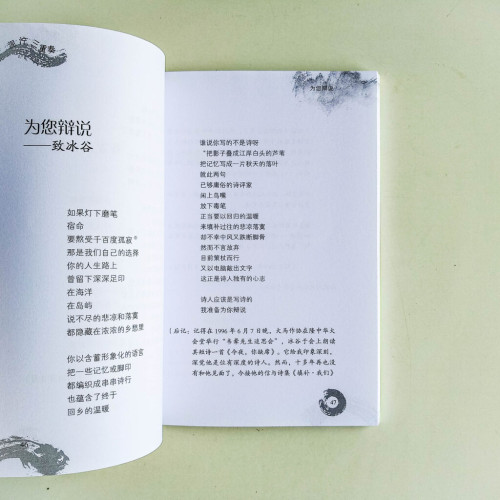 三重奏
为您辩说
——致冰谷
如果灯下磨笔
宿命
要熬受千百度孤寂
那是我们自己的选择
你的人生路上
曾留下深深足印
在海洋
在岛屿
说不尽的悲凉和落寞
都隐藏在浓浓的乡愁里
你以含蓄形象化的语言
把一些记忆或脚印
都编织成串串诗行
也蕴含了终于
回乡的温暖
为您辩说
谁说你写的不是诗呀
“把影子叠成江岸白头的芦苇
把记忆写成一片秋天的落叶
就此两句
已够庸俗的诗评家
闲上鸟嘴
放下毒笔
正当要以回归的温暖
来填补过往的悲凉落寞
却不幸中风又跌断脚骨
然而不言放弃
目前策杖而行
又以电脑敲出文字
这正是诗人独有的心志
诗人应该是写诗的
我准备为你辩说
［后记：记得在 1996 年 6 月 7 日晚，大马作协在隆中华大
会堂举行“韦晕先生追思会”，冰谷于会上朗读
其短诗一首《今夜，你缺席》。它给我印象深刻，
深觉他是位有深度的诗人。然而，十多年再也没
有和他见面了。今接他的信与诗集《填补·我们》
47